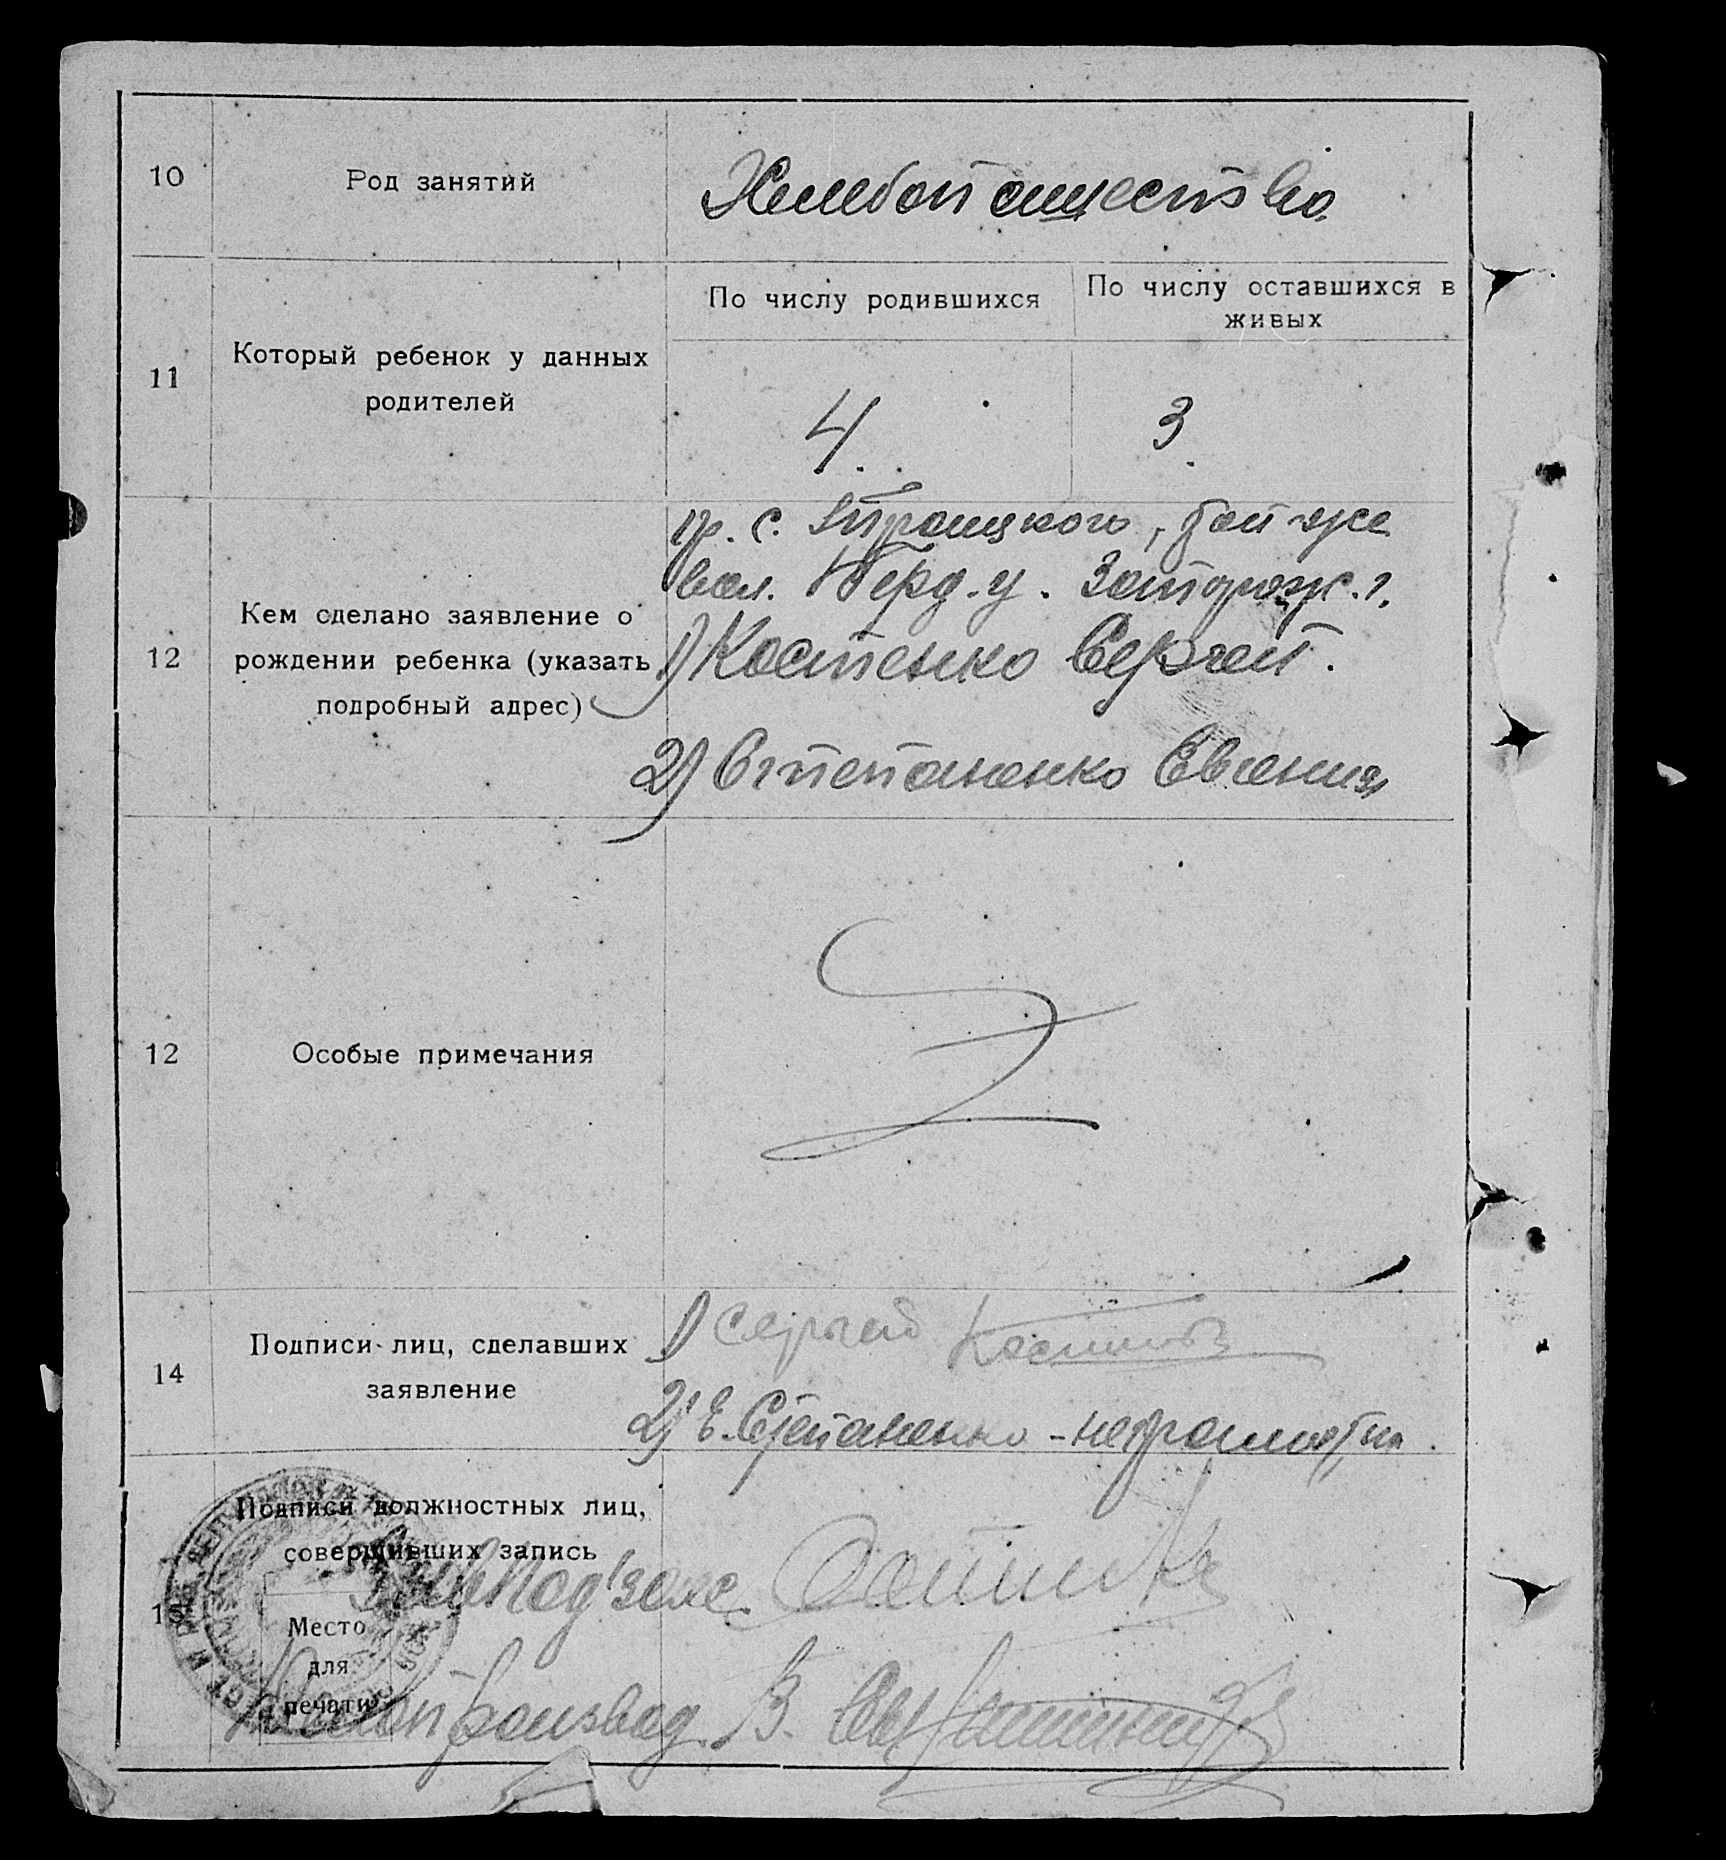 10 Род занятий Хлебопашество
По числу родившихся По числу оставшихся в живых
11 Который ребенок у данных
родителей
4. 3.
гр. с. Троицкого, той же
вол. Берд. у. Запорож. г.
12 Кем сделано заявление о
рождении ребенка (указать
подробный адрес)
1) Костенко Сергей.
2) Степаненко Евгения
12 Особые примечания
14 Подписи лиц, сделавших
заявление
1) Сергей
2) Е. Степаненко - неграмотна.
15 Подписи должностных лиц,
совершивших запись
Место
для
печати
Делопроизвод. В.